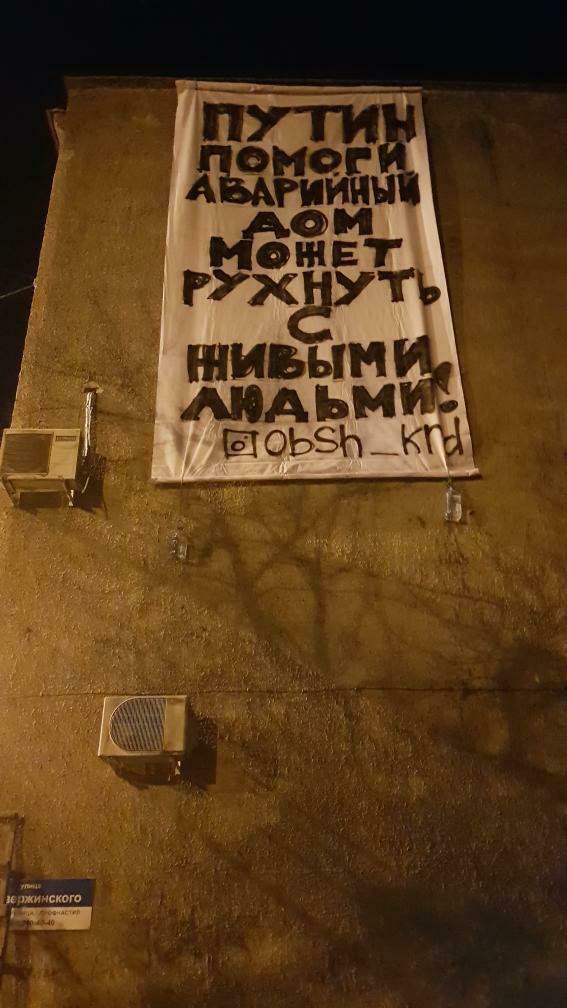 ПУТИН
ПОМОГИ
АВАРИЙНЫЙ
ДОМ
МОЖЕТ
РУХНУТЬ
С
ЖИВЫМИ
ЛЮДЬМИ!
obsh_krd
улица
зержинского
ПРОФНАСТИЛ
40-40